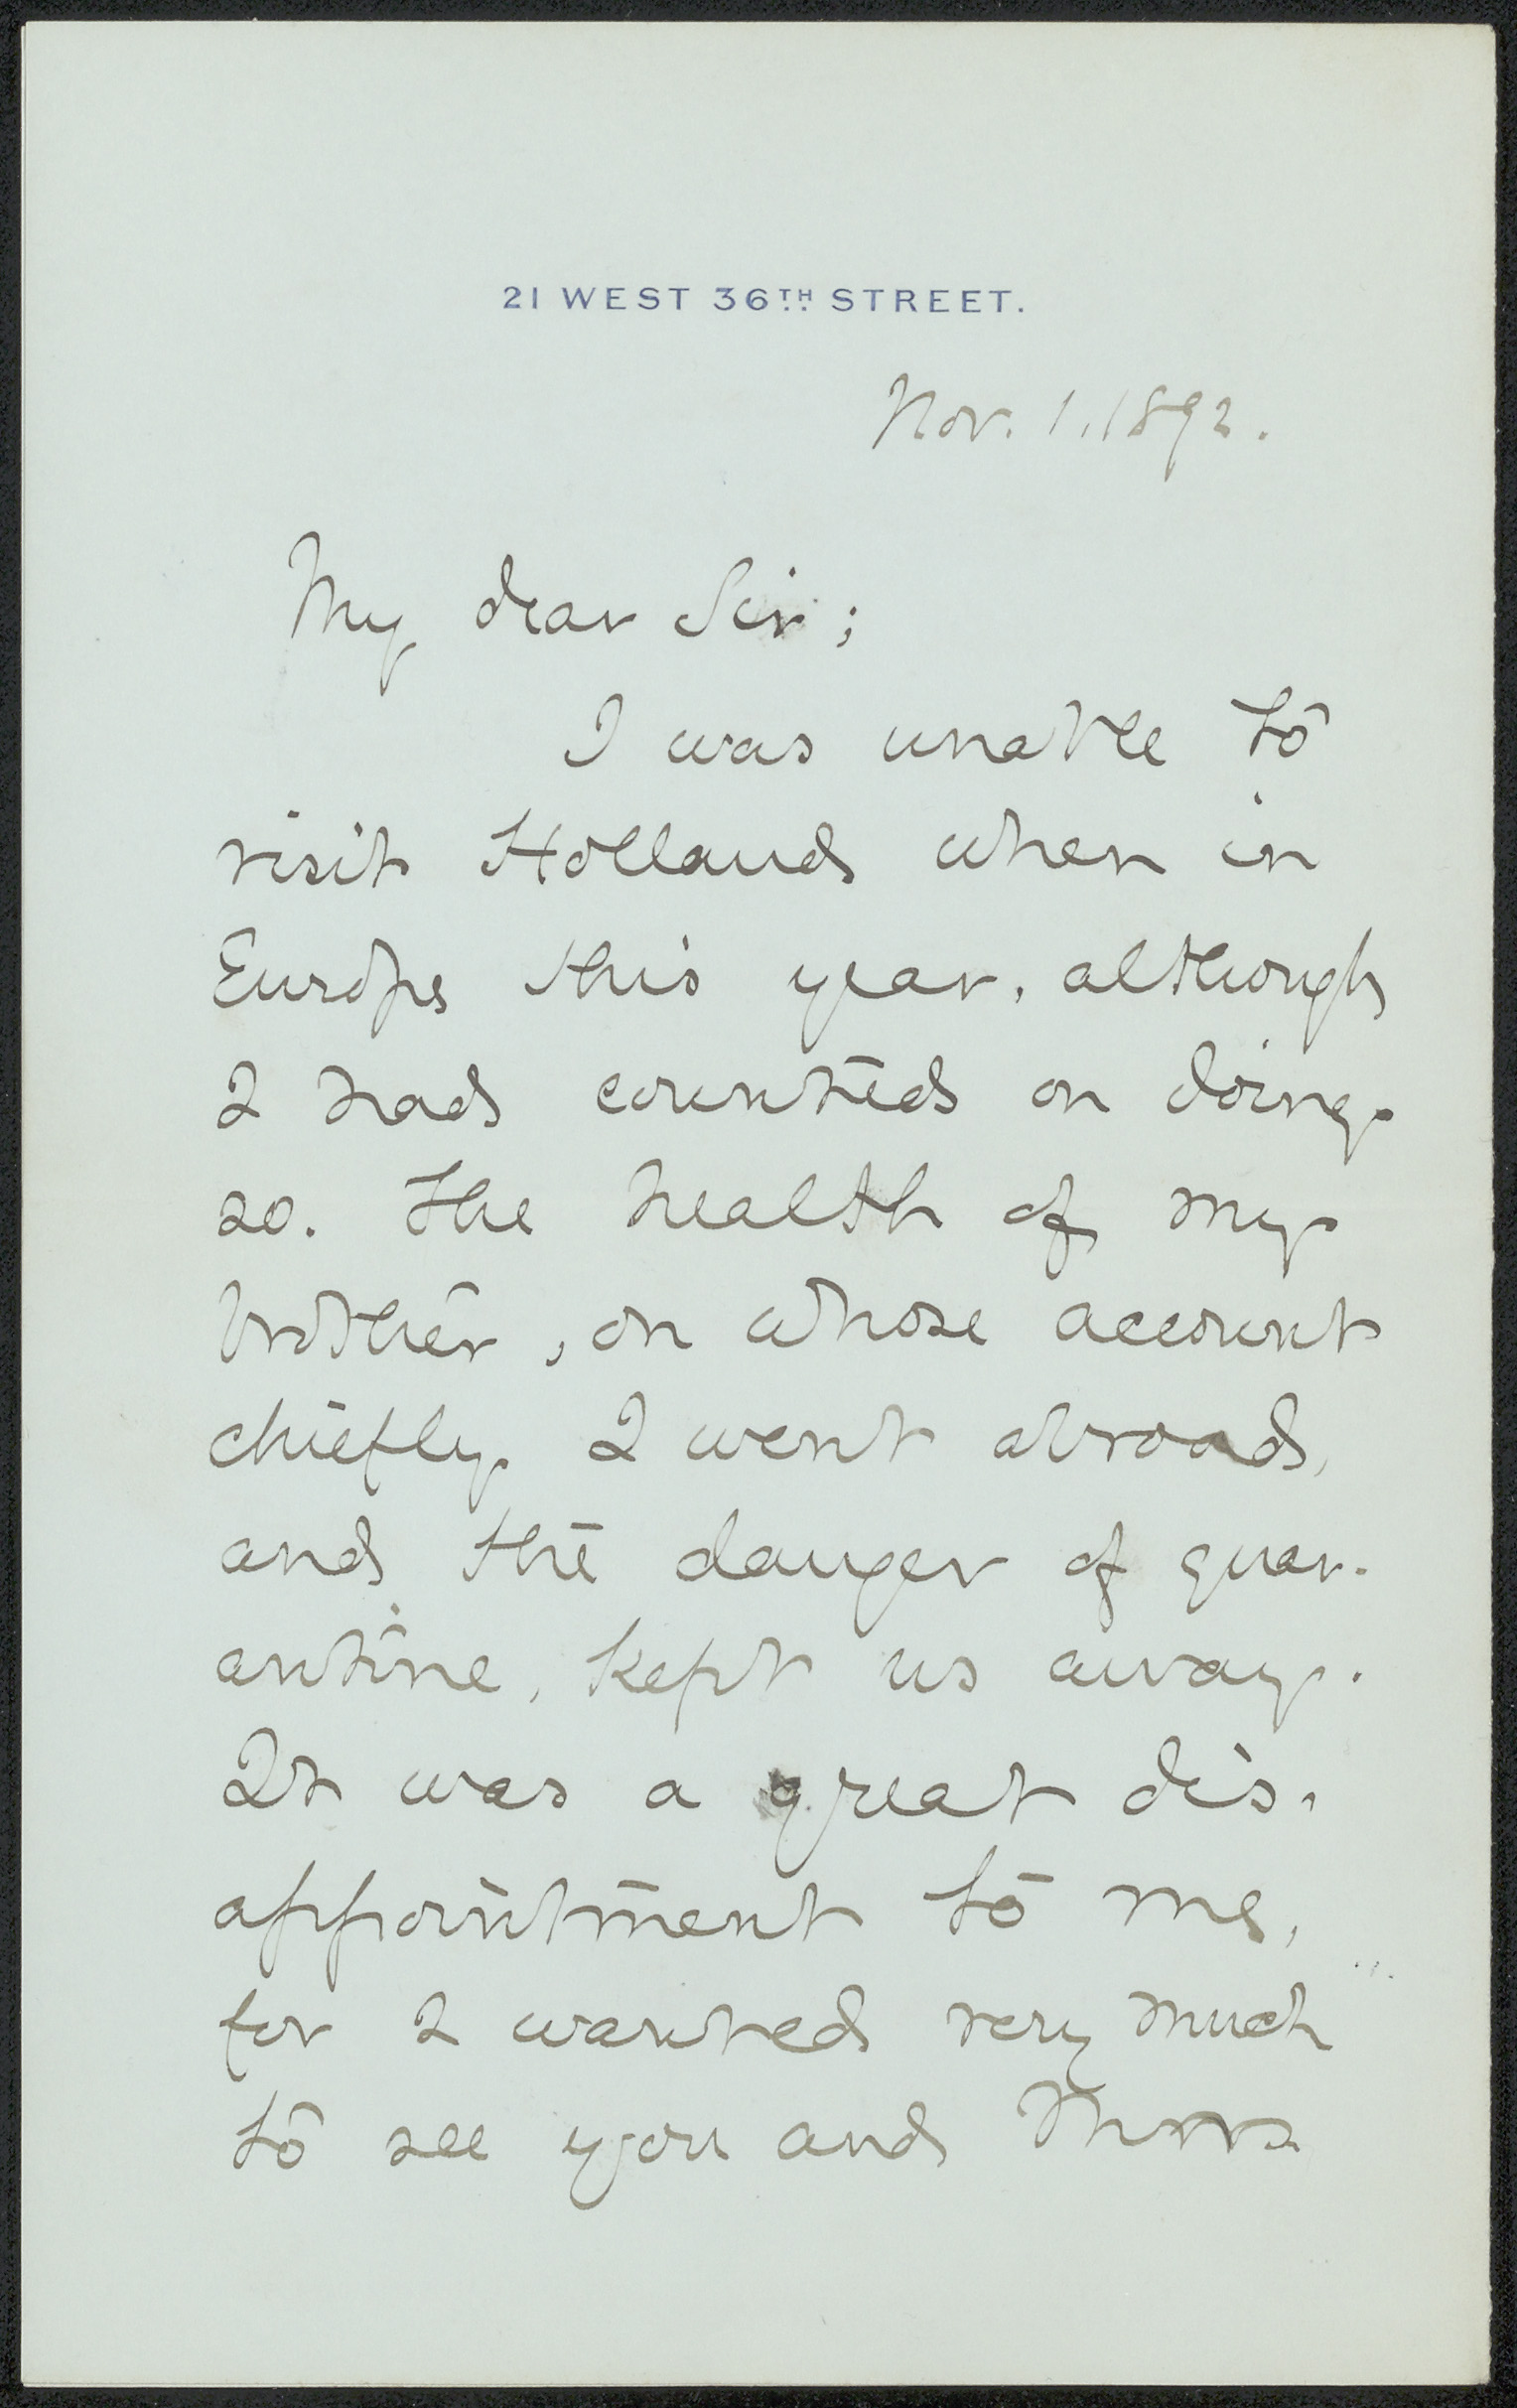 21 WEST 36TH STREET.
Nov. 1, 1892.
My dear Sir;
I was unable to
visit Holland when in
Europe this year, although
I had counted on doing
so. The health of my
brother, on whose account
chiefly I went abroad,
and the danger of quar-
antine, kept us away.
It was a great dis-
appointment to me,
for I wanted very much
to see you and